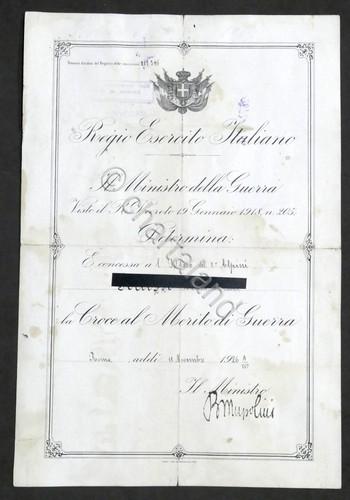 Numero d'ordine del Registro delle concessioni
Regio Esercito Italiano
Il Ministro della Guerra
Visto il R. Decreto 19 Gennaro 1918, n. 205;
Determina:
È concessa al
Alpini
la Croce al Merito di Guerra
Roma, addì 11 Novembre 1926
Il Ministro
B Mussolini
© Charta and